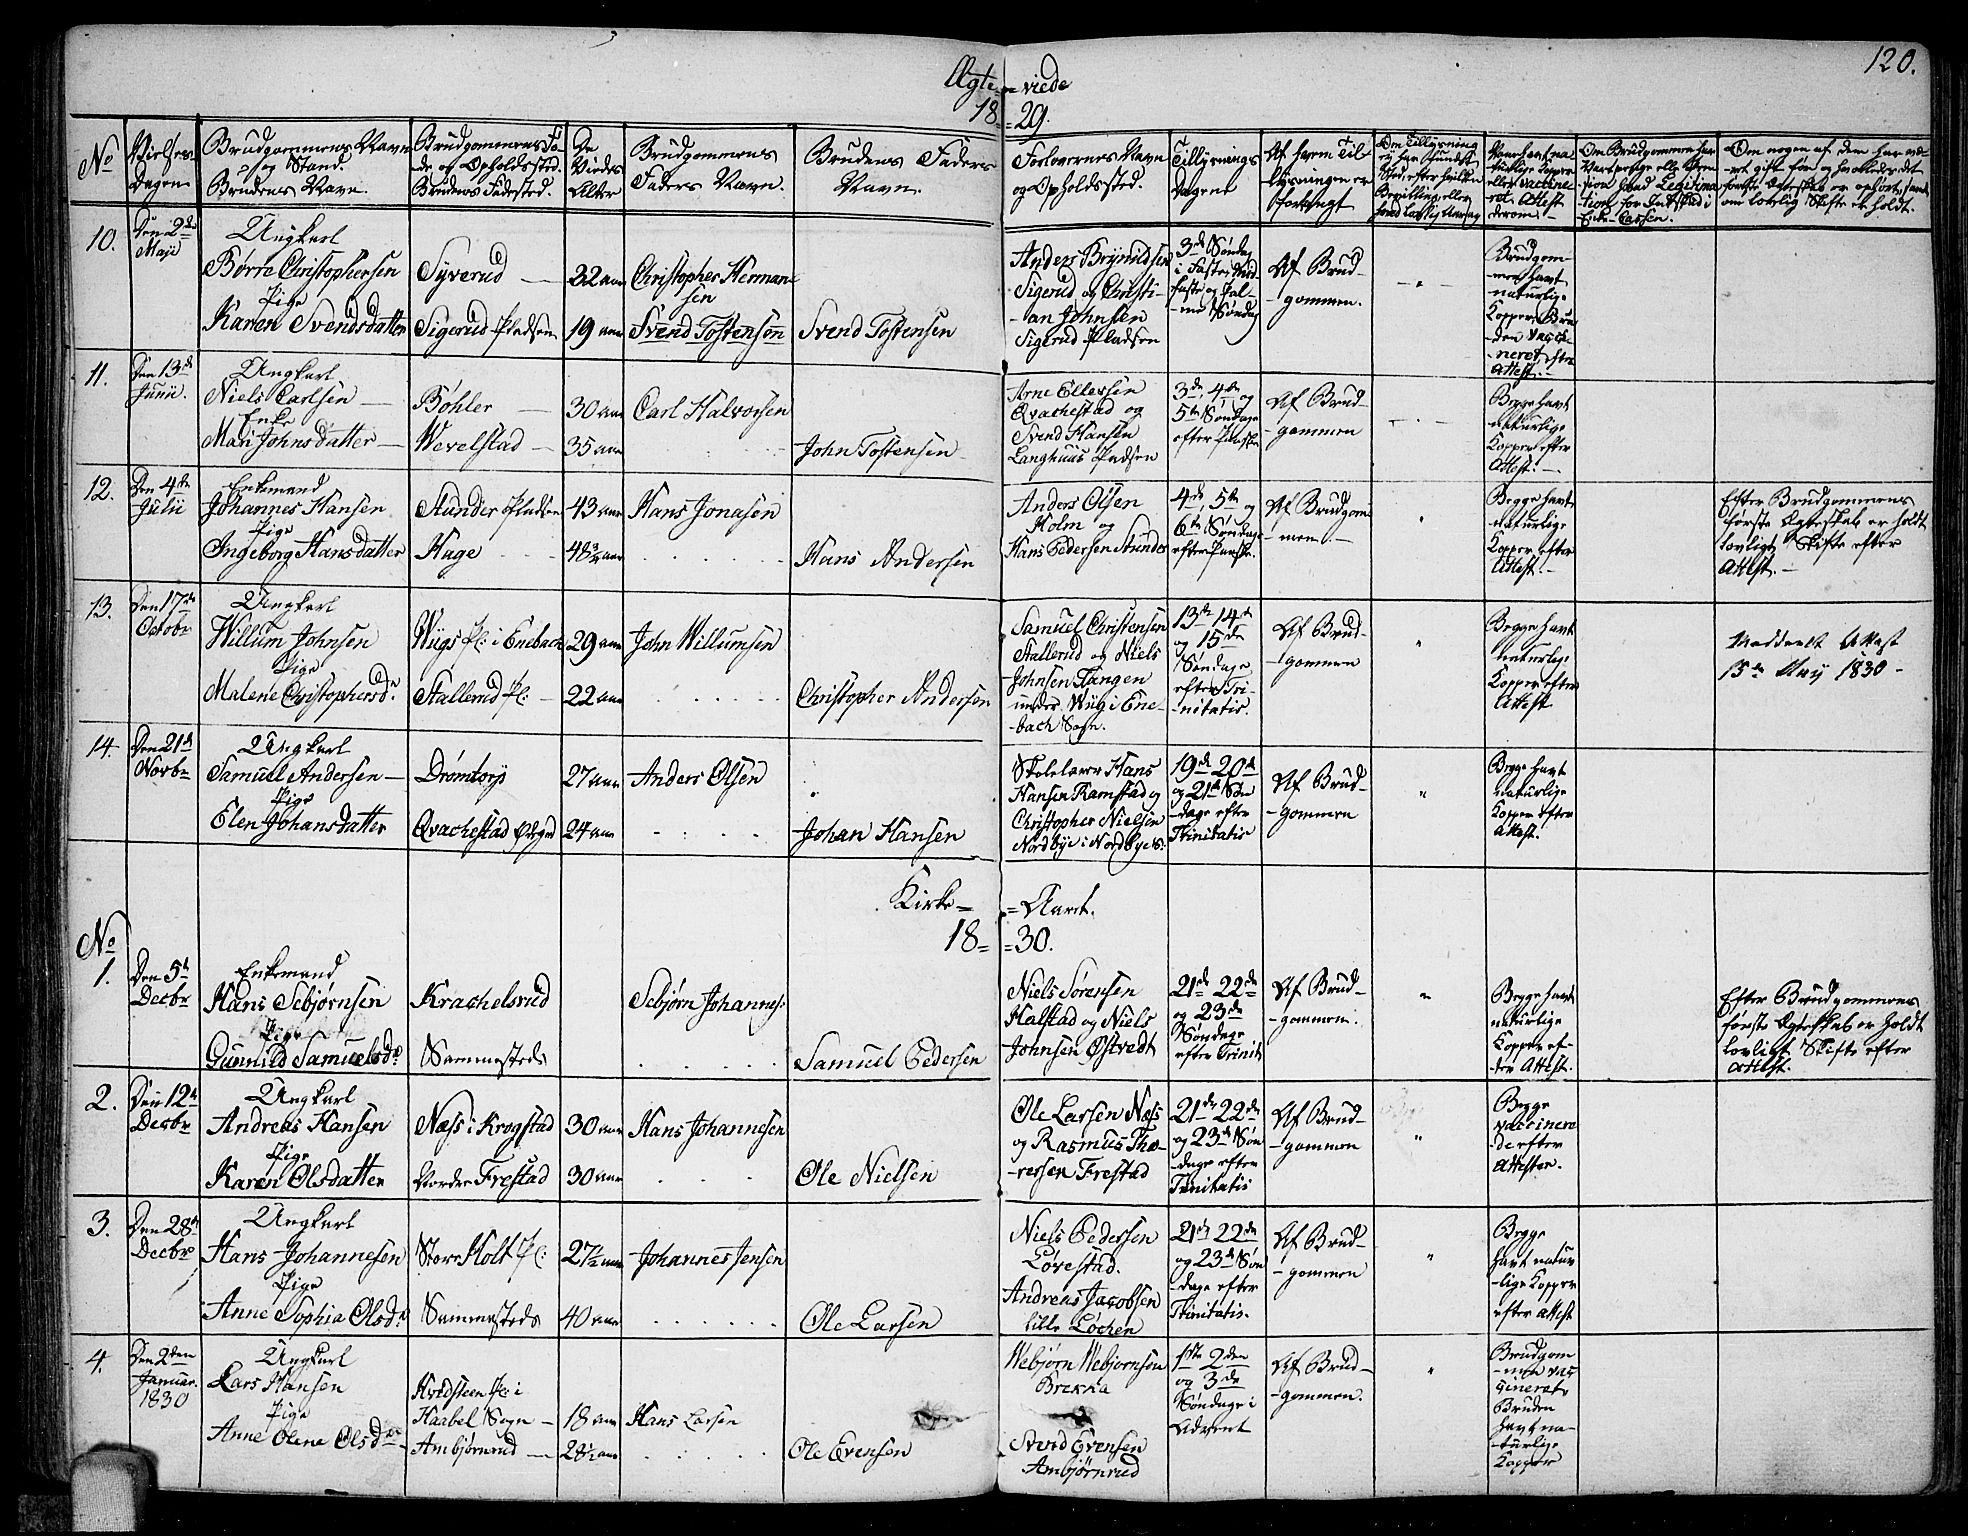 120.
Ægte-
= viede
18=
=29.
No
Vielses
Dagen.
Brudgommens Navn
og Stand.
Brudens Navn.
Brudgommens Fø-
de og Opholdssted.
Brudens Fødested.
De
Viedes
Alter
Brudgommens
Faders Navn.
Brudens Faders
Navn.
Forlovernes Navn
og Opholdssted.
Tillysnings
Dagene
Af hvem Til-
lysningen er
forlangt
10.
Den 2den
Maji
Ungkarl
Børre Christophersen
Pige
Karen Svendsdatter
Syverud —
Sigerud Pladsen
32 aar
19 aar
Christopher Herman-
sen
Svend Tostensen
Svend Tostensen
Anders Brynildsen
Sigerud og Christi-
-an Johnsen
Sigerud Pladsen
3de Søndag
i Faste, Mid-
faste og Pal-
me Søndag
Af Brud-
-gommen.
Brudgom-
men havt
naturlige
Kopper, Bru-
-den vacci-
neret efter
Attest.-
11.
Den 13de
Junii.
Ungkarl
Niels Carlsen —
Enke
Mari Johnsdatter —
Bøhler —
Wevelstad —
30 aar
35 aar
Carl Halvorsen
John Tostensen
Arne Ellersen
Qvachestad og
Svend Hansen
Langhuus Pladsen
3de, 4de og
5te Søndage
efter Paaske
Af Brud-
-gommen
Begge havt
naturlige
Kopper efter
Attest.—
12.
Den 4de
Julii
Enkemand
Johannes Hansen
Pige
Ingeborg Hansdatter
Stunder Pladsen
Hage
43 aar
48 3/4 aar
Hans Jonasen
Hans Andersen
Anders Olsen
Holm og
Hans Pedersen Stunder
4de, 5te og
6te Søndage
efter Paaske.
Af Brudgom-
-men.—
Begge havt
naturlige
Kopper efter
Attest.-
Efter Brudgommens
første Ægteskab er holdt
lovligt Skifte efter
Attest.—
13.
Den 17de
Octobr
Ungkarl
Willum Johnsen
Pige
Malene Christophersdr
Wiigs Pl: i Enebach
Stallerud Pl: —
29 aar
22 aar
John Willumsen
Christopher Andersen
Samuel Christensen
Stallerud og Niels
Johnsen Tangen
under Wiig i Ene-
-bach Sogn.
13de 14de
og 15de
Søndage
efter Tri-
nitatis.
Af Brud-
-gommen
Begge havt
naturlige
Kopper efter
Attest
Meddeelt Attest
15de May 1830 -
14.
Den 21de
Novbr
Ungkarl
Samuel Andersen —
Pige
Elen Johansdatter
Drømtorp
Qvachestad Ødegd
27 aar
24 aar
Anders Olsen
Johan Hansen
Skolelærer Hans
Hansen Ramstad og
Christopher Nielsen
Nordbye i Nordbye S:
19de 20de
og 21de Søn-
dage efter
Trinitatis
Af Brud-
-gommen
Begge havt
naturlige
Kopper efter
Attest.
Kirke=
= Aaret.
18=
=30.
No
1.
Den 5te
Decbr
Enkemand
Hans Sebjørnsen
Pige
Gunnild Samuelsdr
Krachelsrud
Sammesteds
Sebjørn Johannes:
Samuel Pedersen
Niels Sørensen
Halstad og Niels
Johnsen Østvedt
21de 22de
og 23de
Søndage
efter Trinit:
Af Brud-
-gommen.
Begge havt
naturlige
Kopper ef-
ter Attest.
Efter Brudgommens
første Ægteskab er holdt
lovligt Skifte efter
Attest.
2.
Den 12te
Decbr
Ungkarl
Andreas Hansen
Pige
Karen Olsdatter
Næss i Krogstad
Nordre Frestad
30 aar
30 aar
Hans Johannesen
Ole Nielsen
Ole Larsen Næss
og Rasmus Tho-
-resen Frestad
21de 22de
og 23de Søn-
-dage efter
Trinitatis
Af Brud-
-gommen
Begge
vaccinere-
-de efter
Attester.
3.
Den 28de
Decbr
Ungkarl
Hans Johannesen
Pige
Anne Sophia Olsdr
Store Holt Pl:
Sammesteds
27 1/2 aar
40 aar
Johannes Jensen
Ole Larsen
Niels Pedersen
Løvestad.
Andreas Jacobsen
lille Løchen
21de 22de
og 23de Søn
-dage efter
Trinitatis.
Af Brud-
-gommen
Begge
havt natur-
-lige Kopper
efter Attest
4.
Den 2den
Januar.
1830
Ungkarl
Lars Hansen
Pige
Anne Olene Olsdr
Hvidsteen Pl: i
Haabel Sogn —
Ambjørnrud —
18 aar
28 1/2 aar
Hans Larsen
Ole Evensen
Webjørn Webjørnsen
Brekka
Svend Evensen
Ambjørnrud
1ste 2den
og 3de
Søndage i
Advent
Af Brud-
-gommen.
Brudgom-
-men vac-
cineret
Bruden
havt na-
-turlige
Kopper